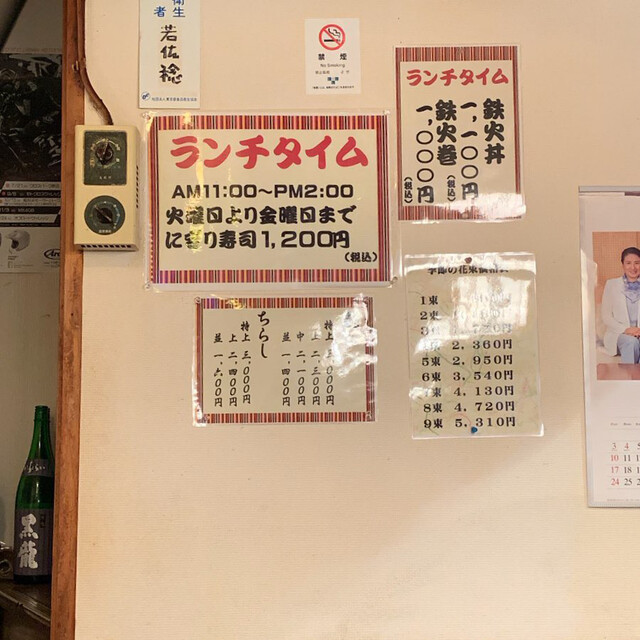 衛生
者
若佐稔
禁煙
No Smoking
ランチタイム
鉄火丼
一、一〇〇円
(税込)
鉄火巻
一、〇〇〇円
(税込)
ランチタイム
AM11:00〜PM2:00
火曜日より金曜日まで
にぎり寿司1,200円
(税込)
特上 三、〇〇〇円
上 二、三〇〇円
中 二、一〇〇円
並 一、四〇〇円
ちらし
特上 三、〇〇〇円
上 二、四〇〇円
並 一、六〇〇円
季節の花束価格表
1束
2束
4束 2,360円
5束 2,950円
6束 3,540円
7束 4,130円
8束 4,720円
9束 5,310円
3 4 5
10 11
17 18
24 25
黒龍